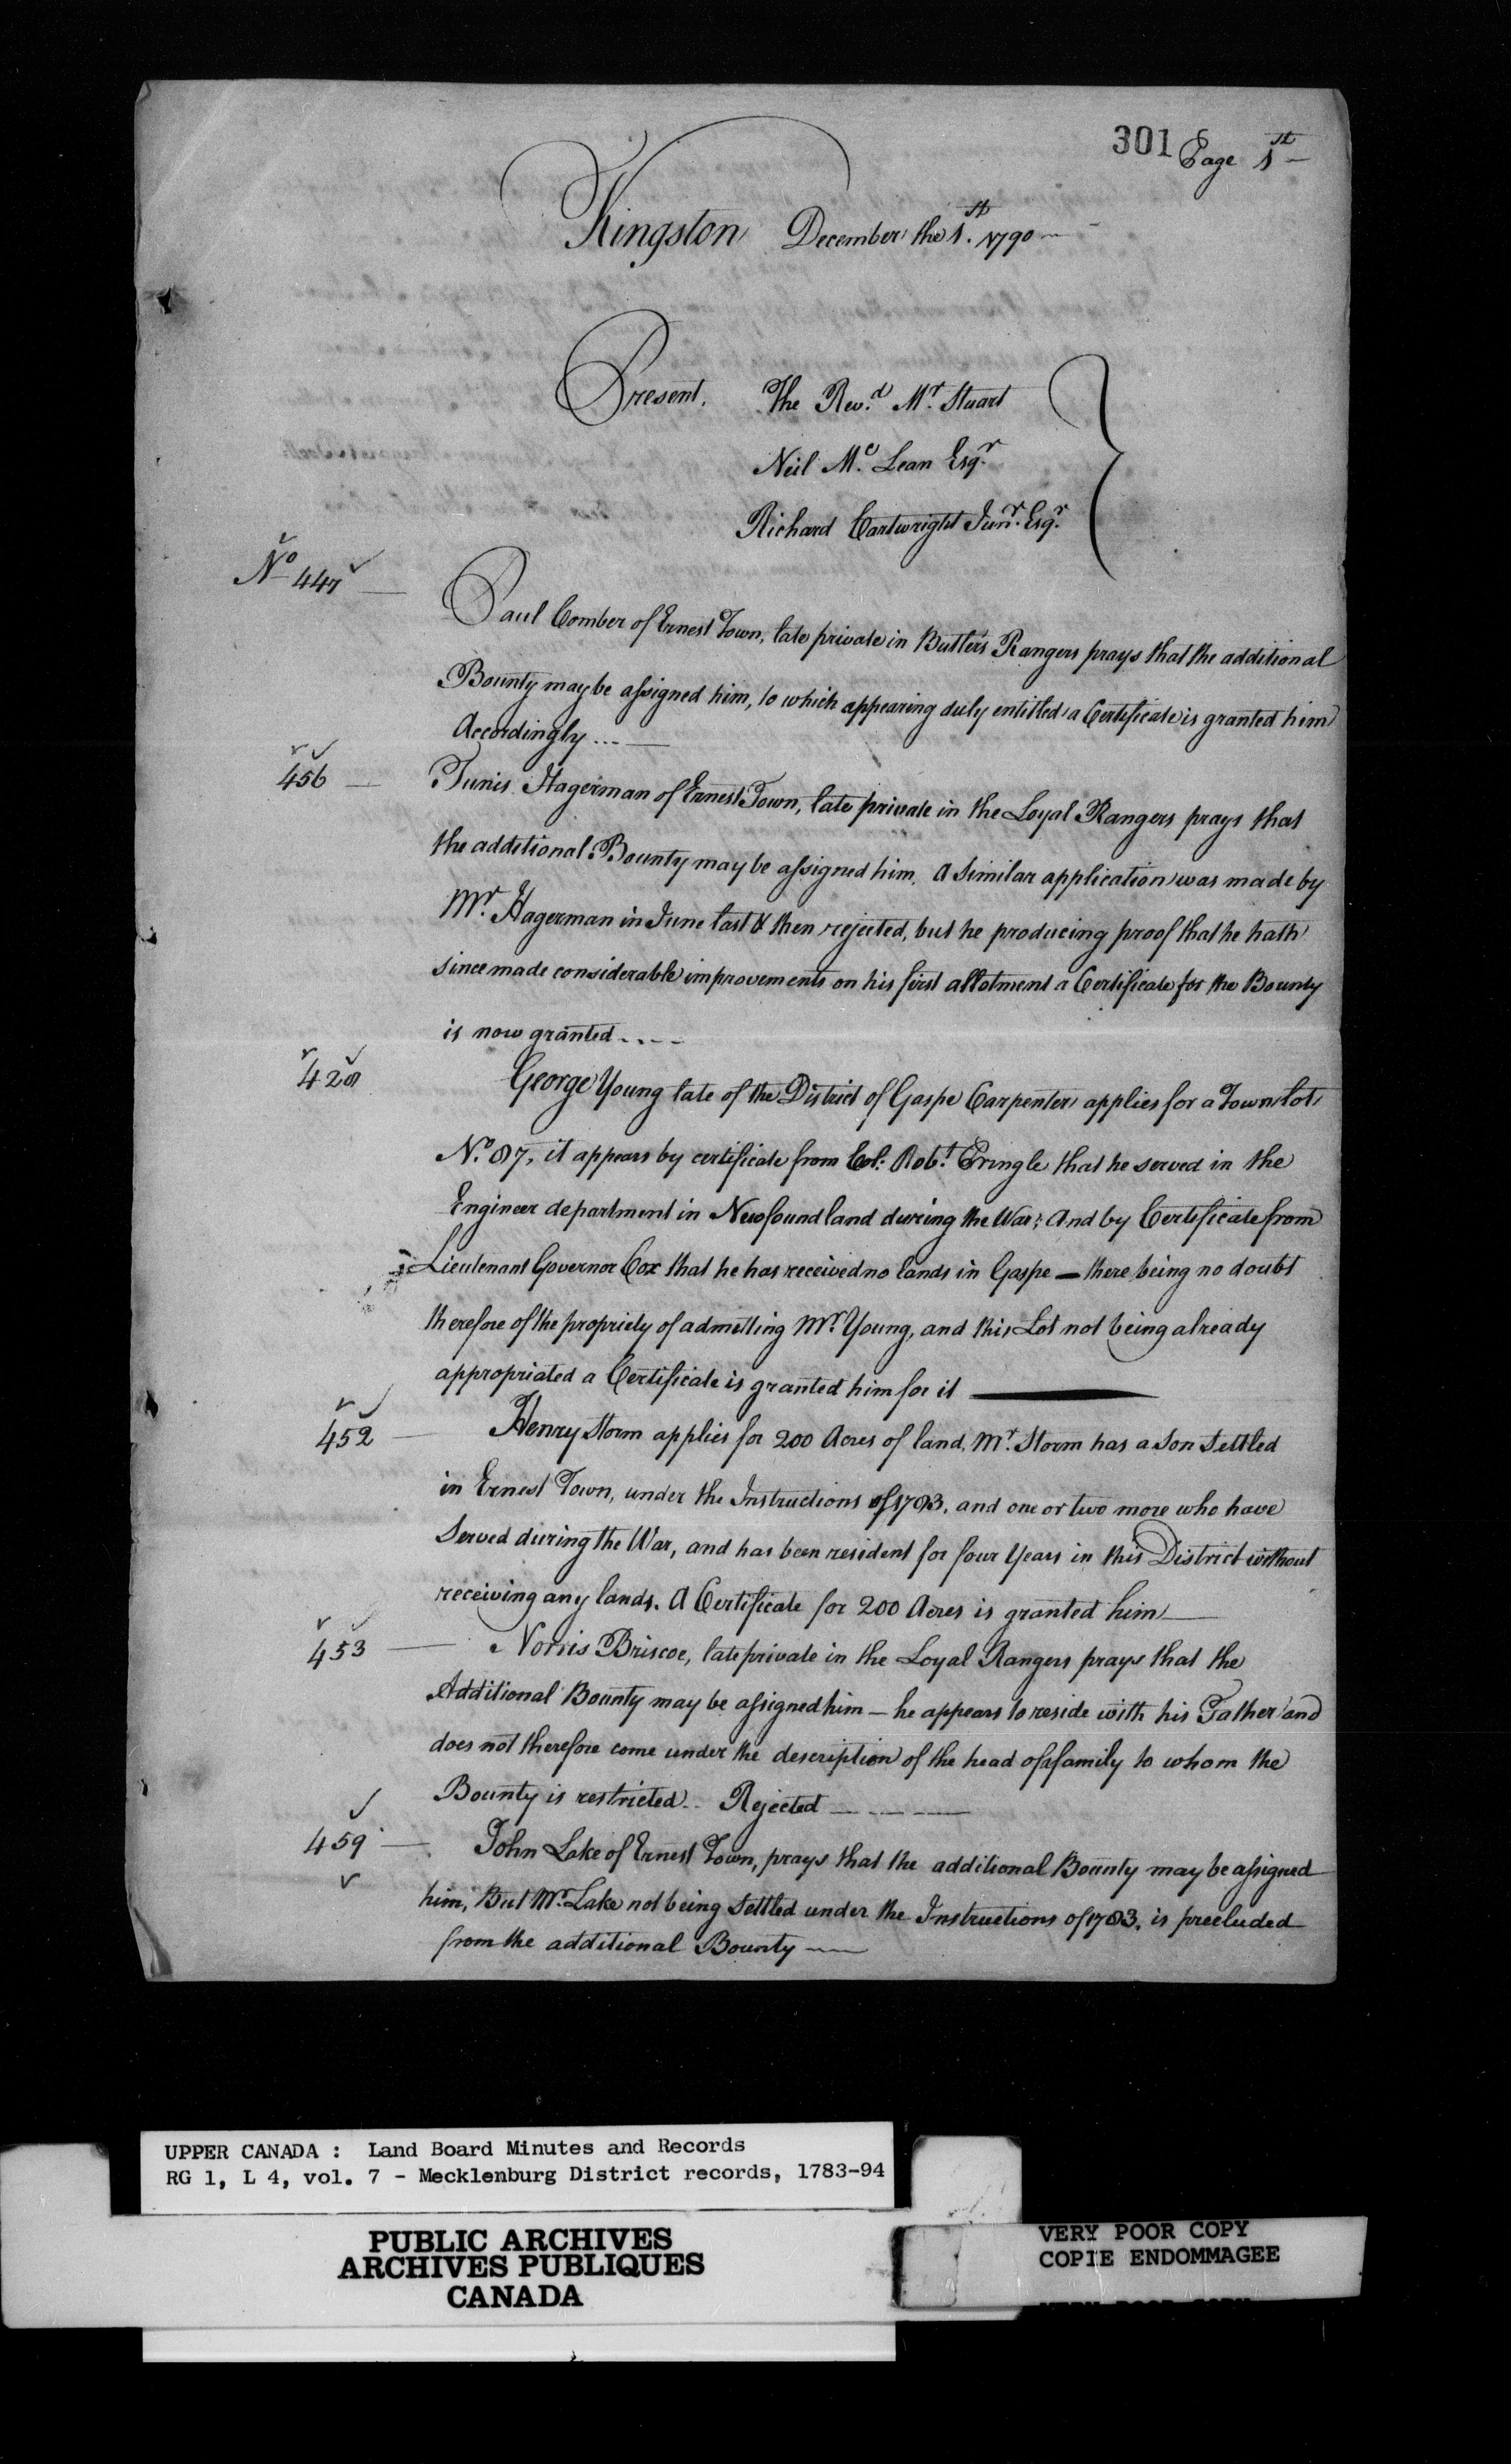 301 Page 1st
Kingston December the 1st. 1790
Present. The Revd. Mr. Stuart
Neil Mc. Lean Esqr.
Richard Cartwright Junr. Esqr.
No 447
Paul Comber of Ernest Town, late private in Butler's Rangers prays that the additional
Bounty may be assigned him, to which appearing duly entitled a Certificate is granted him
Accordingly ...
456 Tunis Hagerman of Ernest Town, late private in the Loyal Rangers prays that
the additional Bounty may be assigned him. A Similar application was made by
Mr. Hagerman in June last & then rejected, but he producing proof that he hath
since made considerable improvements on his first allotment a Certificate for the Bounty
is now granted....
428 George Young late of the District of Gaspe Carpenter applies for a Town lot
No. 87, it appears by certificate from Col: Robt. Pringle that he served in the
Engineer department in Newfoundland during the War; And by Certificate from
Lieutenant Governor Cox that he has received no lands in Gaspe — there being no doubt
therefore of the propriety of admitting Mr. Young, and this Lot not being already
appropriated a Certificate is granted him for it —
452 Henry Storm applies for 200 Acres of land, Mr. Storm has a Son Settled
in Ernest Town, under the Instructions of 1783, and one or two more who have
Served during the War, and has been resident for four Years in this District without
receiving any lands. A Certificate for 200 Acres is granted him —
453 — Norris Briscoe, late private in the Loyal Rangers prays that the
Additional Bounty may be assigned him — he appears to reside with his Father and
does not therefore come under the description of the head of a family to whom the
Bounty is restricted.. Rejected — — —
459 — John Lake of Ernest Town, prays that the additional Bounty may be assigned
him, But Mr. Lake not being Settled under the Instructions of 1783, is precluded
from the additional Bounty —
UPPER CANADA : Land Board Minutes and Records
RG 1, L 4, vol. 7 - Mecklenburg District records, 1783-94
PUBLIC ARCHIVES
ARCHIVES PUBLIQUES
CANADA
VERY POOR COPY
COPIE ENDOMMAGEE